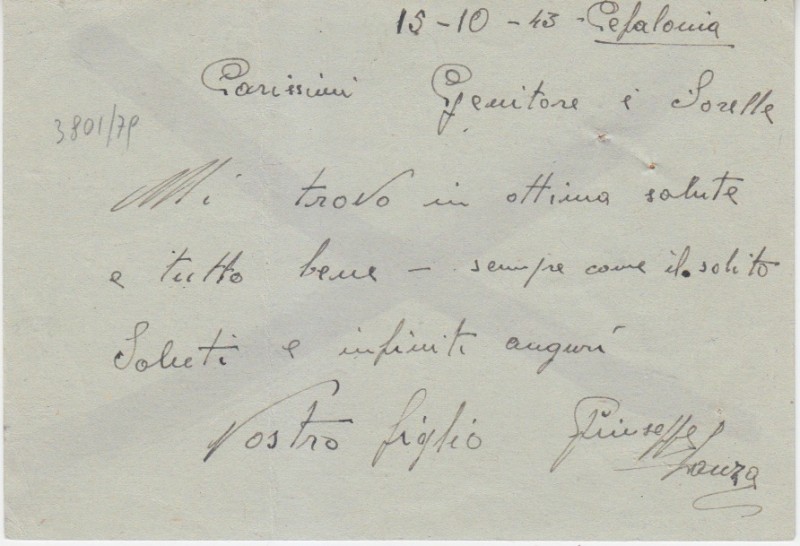 15-10-43-Cefalonia
Carissimi Genitore e Sorelle
3801/79
Mi trovo in ottima salute
e tutto bene - sempre come il solito
Saluti e infiniti auguri
Vostro figlio Giuseppe